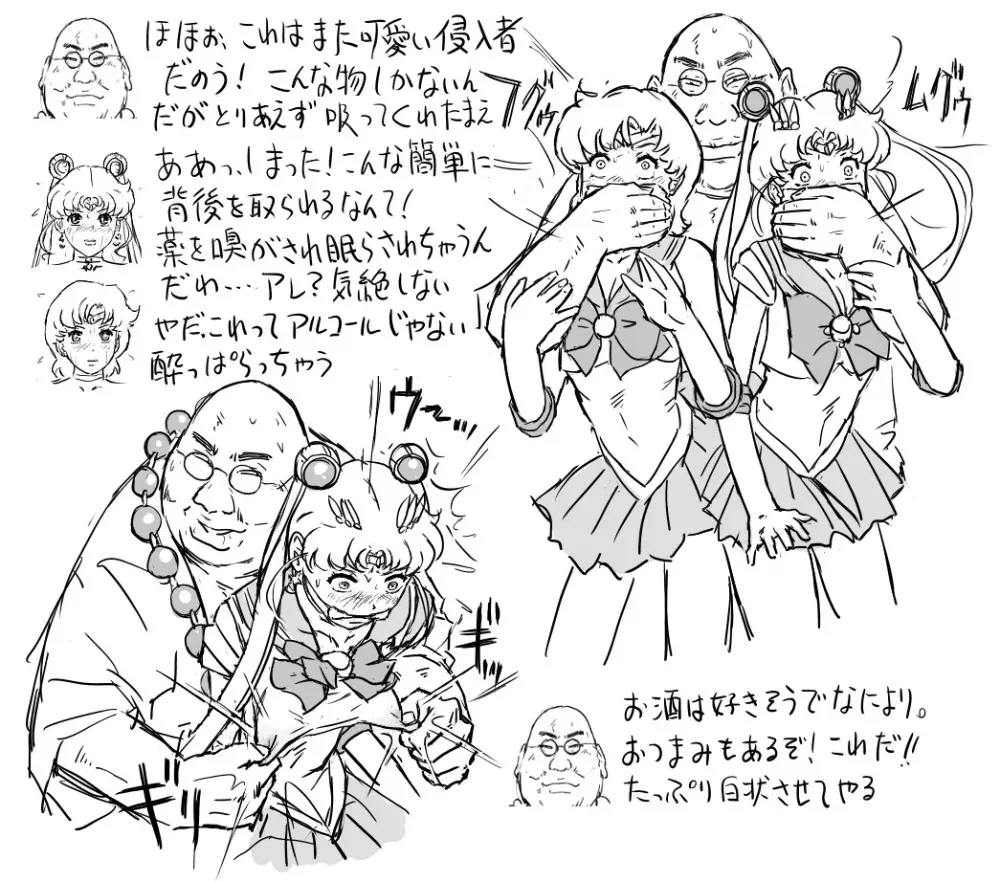 ほほぉ、これはまた可愛い侵入者
だのう！こんな物しかないん
だがとりあえず吸ってくれたまえ
ああっ、しまった！こんな簡単に
背後を取られるなんて！
薬を嗅がされ眠らされちゃうん
だわ…アレ？気絶しない
やだ、これってアルコールじゃない！
酔っぱらっちゃう
フグゥ
ムグゥ
ウ〜ッ
ギリ
ギ
お酒は好きそうでなにより。
おつまみもあるぞ！これだ!!
たっぷり白状させてやる